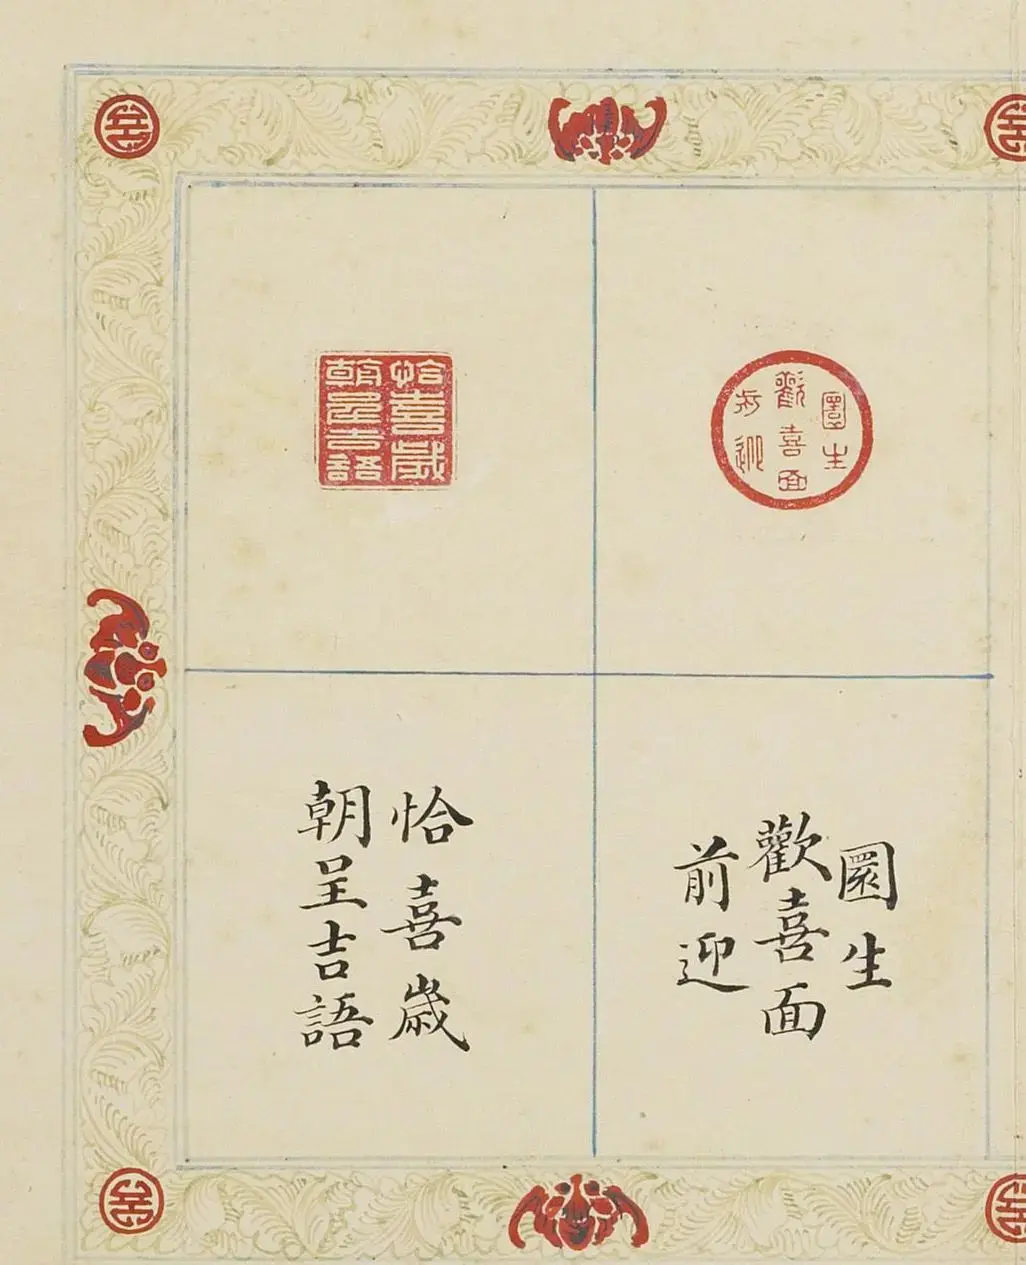 圜生
歡喜面
前迎
圜生
歡喜面
前迎
恰喜歲
朝呈吉語
恰喜歲
朝呈吉語